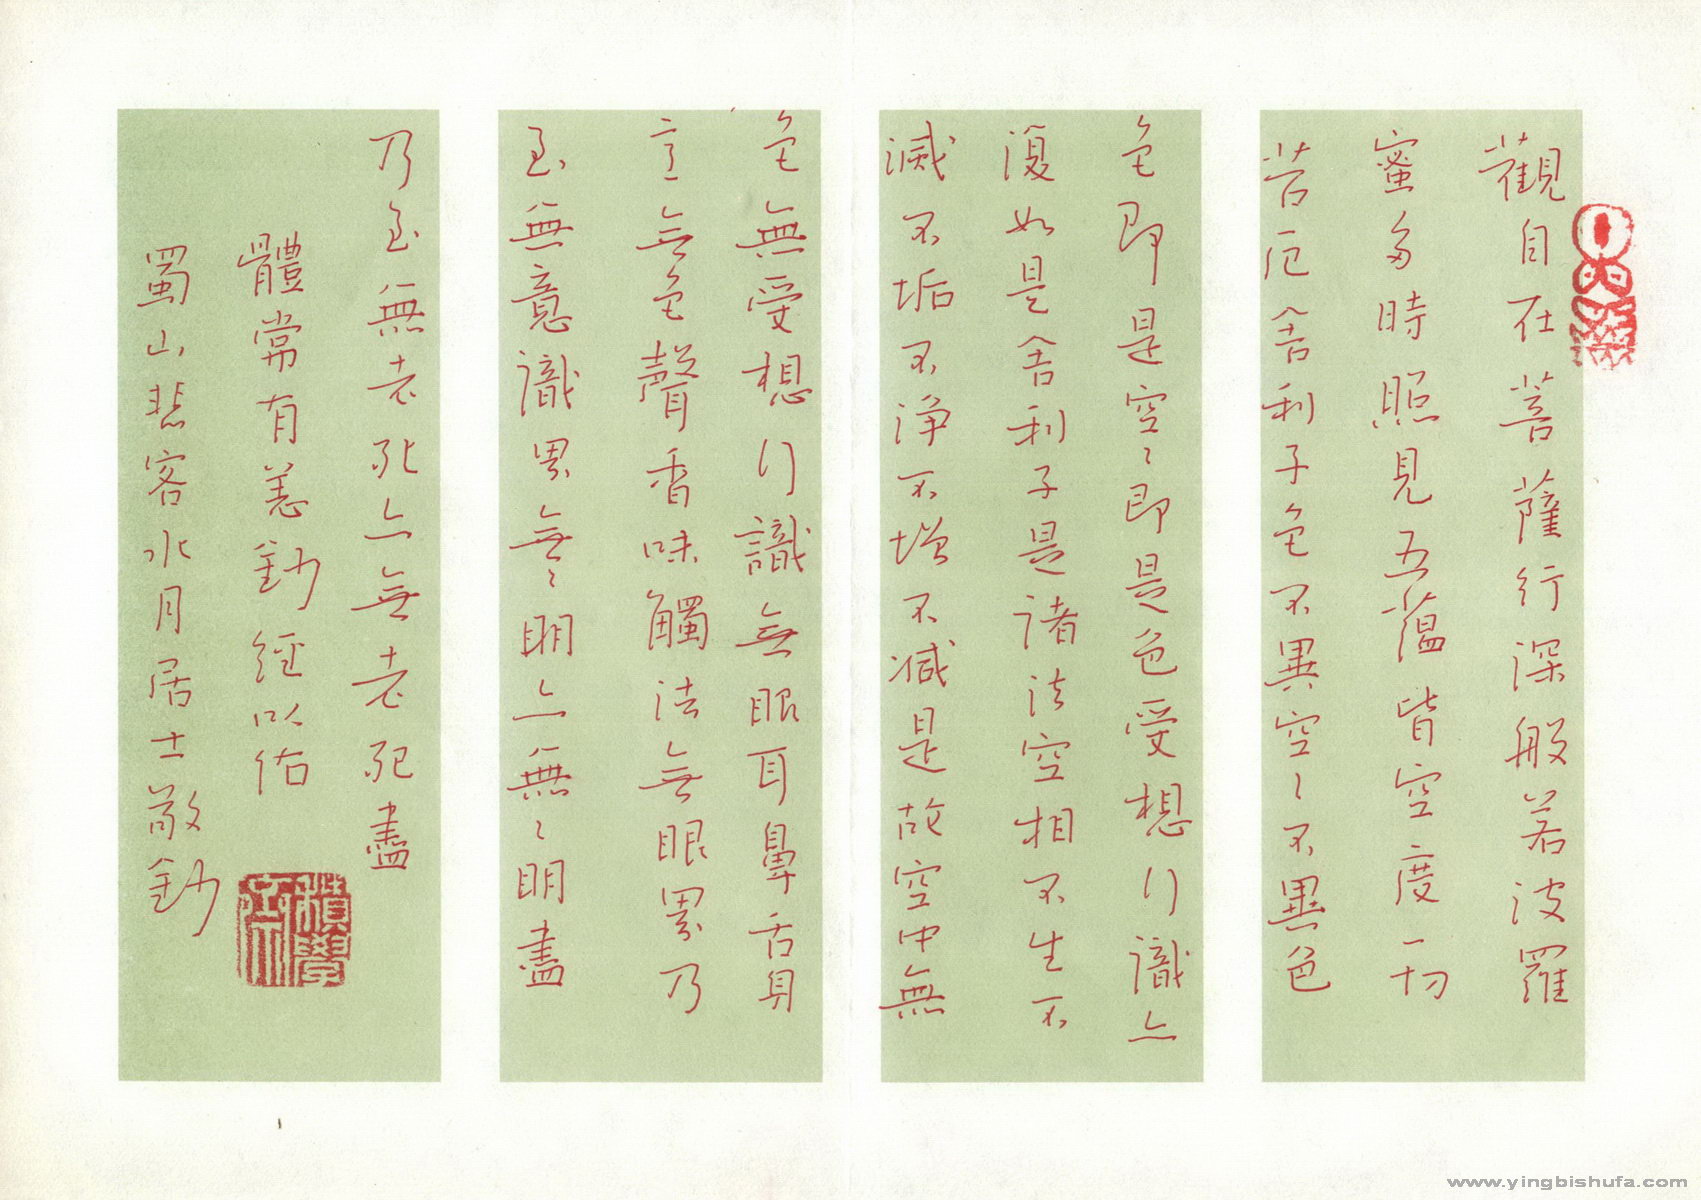 觀自在菩薩行深般若波羅
蜜多時照見五蘊皆空度一切
苦厄舍利子色不異空〻不異色
色即是空〻即是色受想行識亦
復如是舍利子是諸法空相不生不
滅不垢不淨不增不減是故空中無
色無受想行識無眼耳鼻舌身
意無色聲香味觸法無眼界乃
至無意識界無〻明亦無〻明盡
乃至無老死亦無老死盡
體常有恙鈔經以佑
蜀山悲客水月居士敬鈔
www.yingbishufa.com